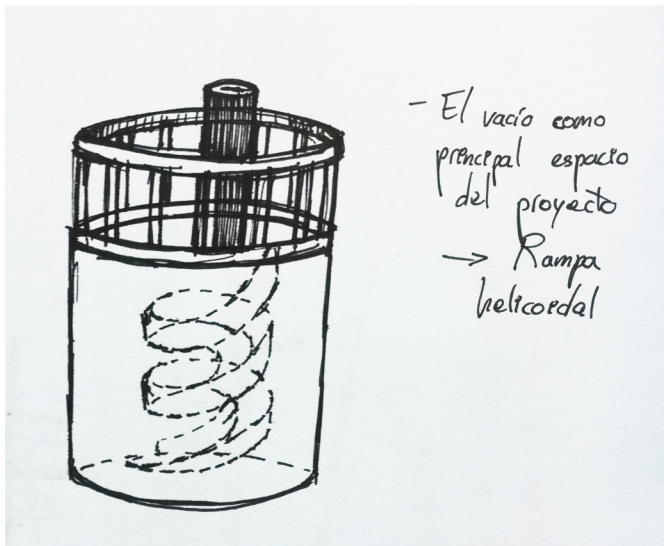 - El vacío como
principal espacio
del proyecto
→ Rampa
helicoidal